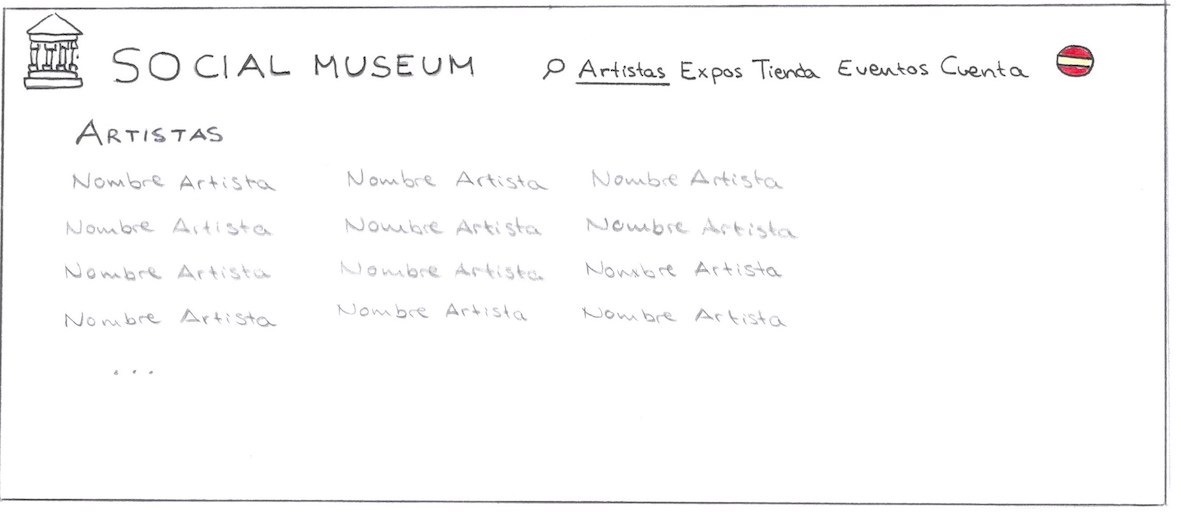 SOCIAL MUSEUM Artistas Expos Tienda Eventos Cuenta
ARTISTAS
Nombre Artista Nombre Artista Nombre Artista
Nombre Artista Nombre Artista Nombre Artista
Nombre Artista Nombre Artista Nombre Artista
Nombre Artista Nombre Artista Nombre Artista
...